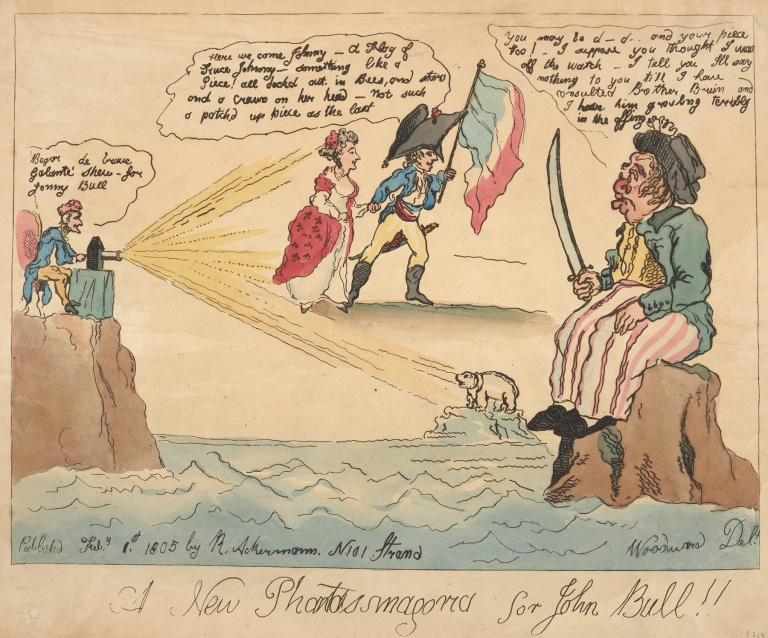 Begar de brave
Galanté shew - for
Jonny Bull
Here we come Johnny - a Flag of
Truce Johnny - something like a
Piece! all deckd out in Bees, and stars
and a Crown on her head - Not such
a patchd up piece as the last
You may be d-d.. and your piece
too! - I suppose you thought I was
off the watch - I tell you I'll say
nothing to you till I have
consulted Brother Bruin and
I hear him growling terribly
in the offing
Publishd Feby 1st 1805 by R. Ackermann. N101 Strand
Woodward Delt
A New Phantasmagoria for John Bull!!